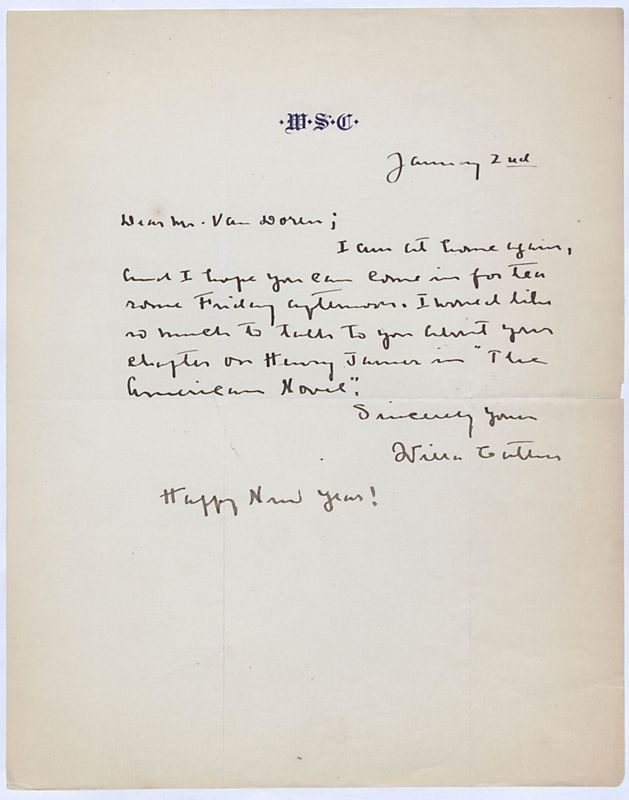 ·W·S·C·
January 2nd
Dear Mr. Van Doren;
I am at home again,
and I hope you can come in for tea
some Friday afternoon. I would like
so much to talk to you about your
chapter on Henry James in "The
American Novel".
Sincerely yours
Willa Cather
Happy New Year!